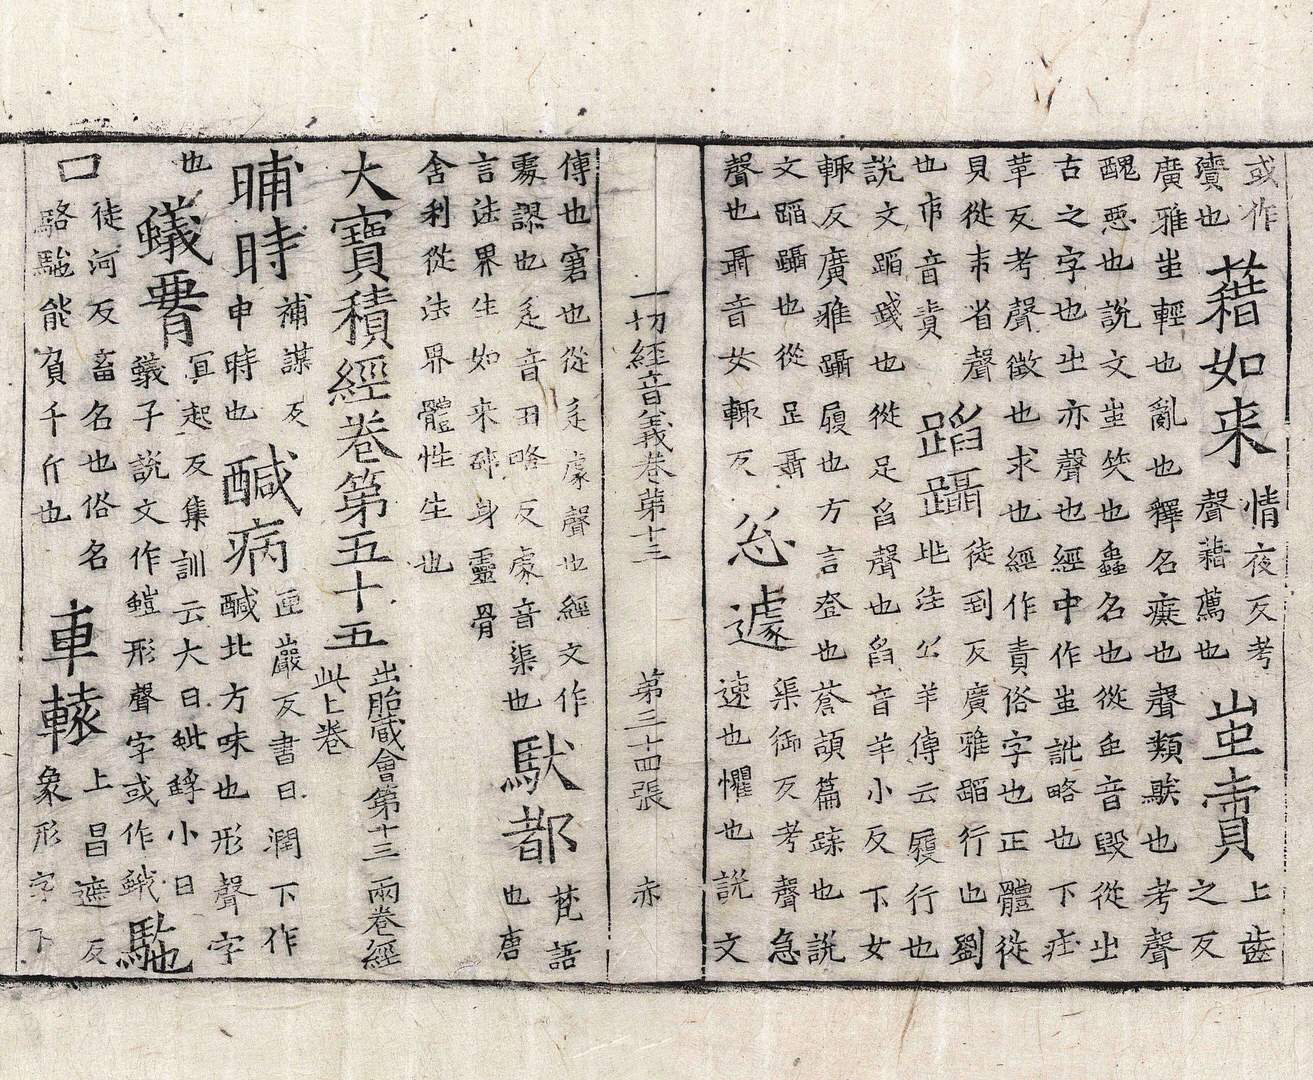 或作
瓆也
藉如来
情夜反考
聲藉薦也
蚩責
上齒
之反
廣雅蚩輕也亂也釋名癡也聲類騃也考聲
醜惡也說文蚩笑也蟲名也從虫音毀從㞢
古之字也㞢亦聲也經中作蚩訛略也下疰
革反考聲徵也求也經作責俗字也正體從
貝從朿省聲
也朿音責
蹈躡
徒到反廣雅蹈行也劉
兆注公羊傳云履行也
說文蹈踐也從足舀聲也舀音羊小反下女
輒反廣雅躡履也方言登也蒼頡篇䟽也說
文蹈躡也從足聶
聲也聶音女輒反
怱遽
渠御反考聲急
速也懼也說文
一切經音義卷第十三 第三十四張 亦
傳也窘也從辵豦聲也經文作
謬也辵音丑略反豦音渠也
馱都
梵語
也唐
言法界生如来碎身靈骨
舍利從法界體性生也
大寶積經卷第五十五
出胎藏會第十三兩卷經
此上卷
晡時
補謀反
申時也
鹹病
匣巖反書曰潤下作
鹹北方味也形聲字
也
蟻
冝起反集訓云大曰蚍蜉小曰
蟻子說文作螘形聲字或作蛾
馳
口
徒河反畜名也俗名
駱馳能負千斤也
車轅
上昌遮反
象形字下